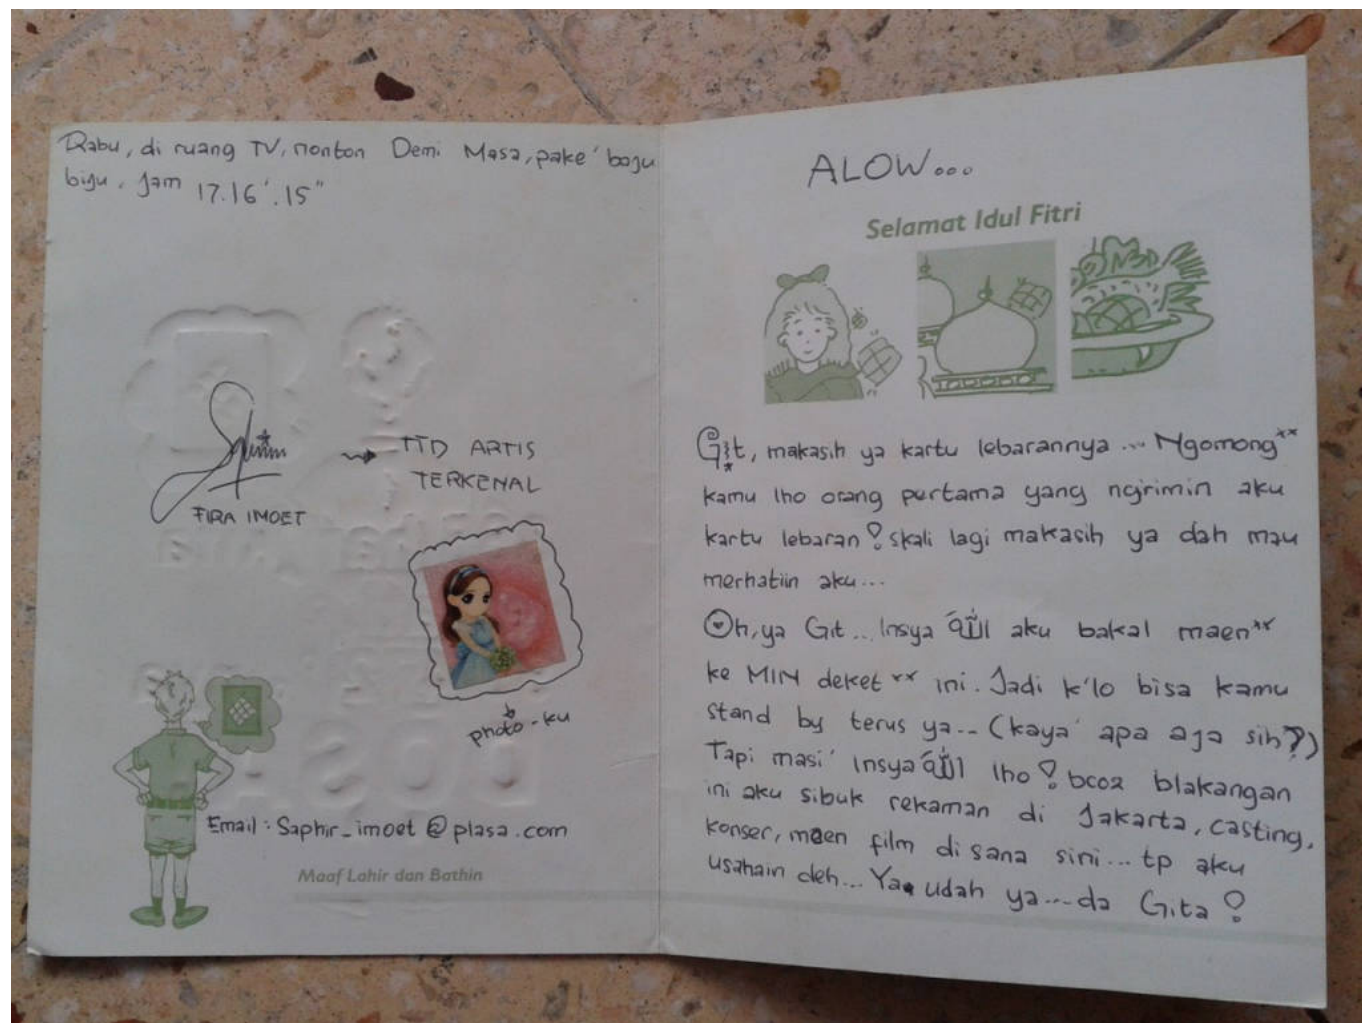 Rabu, di ruang TV, nonton Demi Masa, pake' baju
biju, Jam 17.16'.15"
TTD ARTIS
TERKENAL
FIRA IMOET
photo-ku
Email : Saphir_imoet@plasa.com
Maaf Lahir dan Bathin
ALOW...
Selamat Idul Fitri
Git, makasih ya kartu lebarannya... Ngomong**
kamu lho orang pertama yang ngirimin aku
kartu lebaran! skali lagi makasih ya dah mau
merhatiin aku...
Oh, ya Git... Insya الله aku bakal maen**
ke MIN deket** ini. Jadi k'lo bisa kamu
stand by terus ya... (kaya' apa aja sih?)
Tapi masi' Insya الله lho! bcoz blakangan
ini aku sibuk rekaman di Jakarta, casting,
konser, maen film di sana sini... tp aku
usahain deh... Ya udah ya...da Gita!